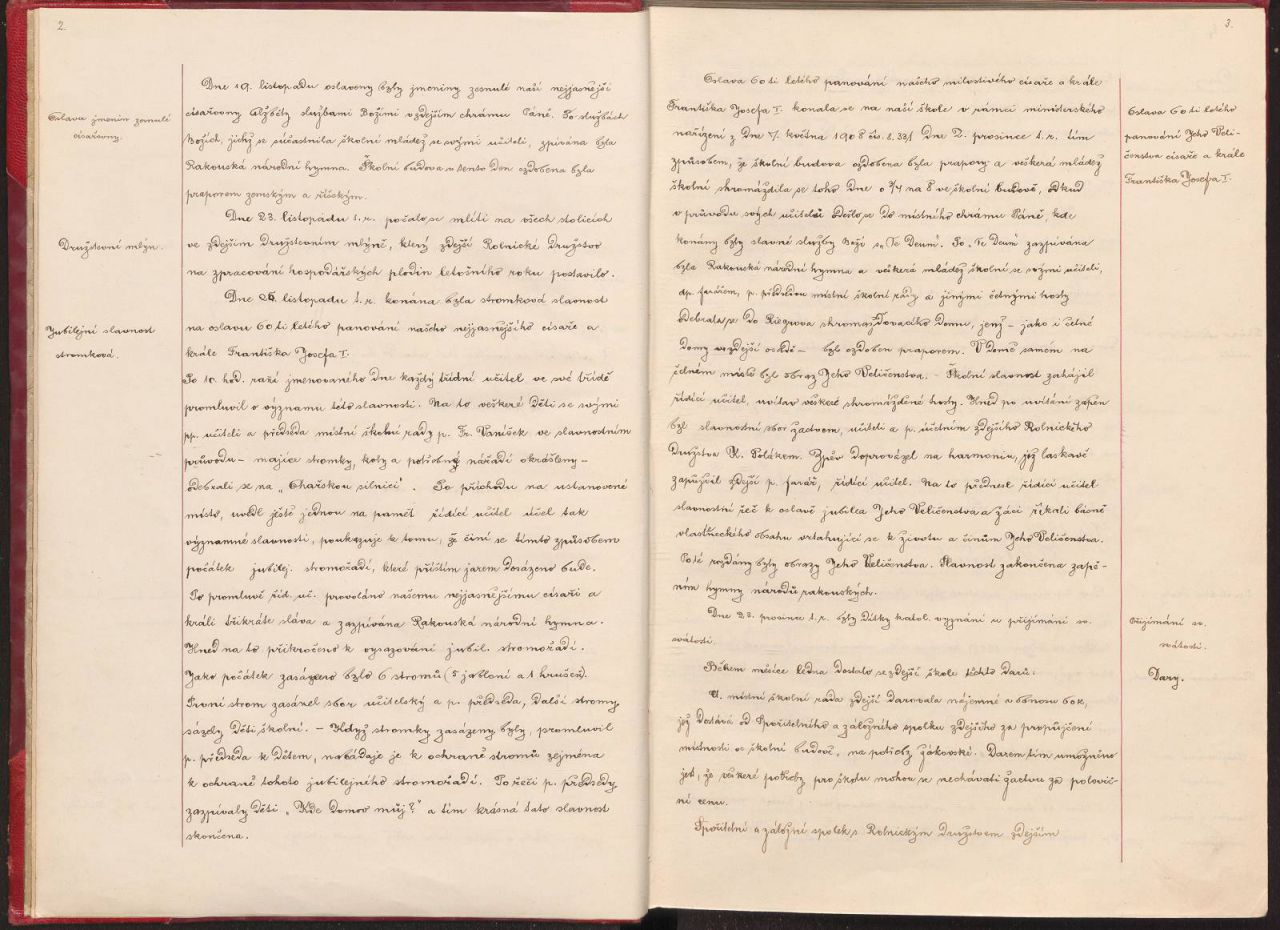 2.
Dne 19. listopadu oslaveny byly jmeniny zesnulé naší nejjasnější
Oslava jmenin zesnulé
císařovny.
císařovny Alžběty službami Božími v zdejším chrámu Páně. Po službách
Božích, jichž se súčastnila školní mládež se svými učiteli, zpívána byla
Rakouská národní hymna. Školní budova na tento den ozdobena byla
praporem zemským a říšským.
Dne 23. listopádu t. r. počalo se mlíti na všech stolicích
Družstevní mlýn.
ve zdejším družstevním mlýně, který zdejší Rolnické družstvo
na zpracování hospodářských plodin letošního roku postavilo.
Dne 26. listopadu t. r. konána byla stromková slavnost
Jubilejní slavnost
stromková.
na oslavu 60 ti letého panování našeho nejjasnějšího císaře a
krále Františka Josefa I.
Po 10. hod. ranní jmenovaného dne každý třídní učitel ve své třídě
promluvil o významu této slavnosti. Na to veškeré děti se svými
pp. učiteli a předseda místní školní rady p. Fr. Vaníček ve slavnostním
průvodu – majíce stromky, koly a potřebný nářadí okrášleny –
odebrali se na „ silnici". Po příchodu na ustanovené
místo, uvedl ještě jednou na paměť řídící učitel účel tak
významné slavnosti, poukazuje k tomu, že činí se tímto způsobem
počátek jubilej. stromořadí, které příštím jarem dosázeno bude.
Po promluvě říd. uč. provoláno našemu nejjasnějšímu císaři a
králi třikráte sláva a zazpívána Rakouská národní hymna.
Hned na to přikročeno k vysazování jubil. stromořadí.
Jako počátek zasázeno bylo 6 stromů (5 jabloní a 1 hrušeň).
První strom zasázel sbor učitelský a p. předseda, další stromy,
sázely děti školní. – Když stromky zasázeny byly, promluvil
p. předseda k dětem, nabádaje je k ochraně stromů zejména
k ochraně tohoto jubilejního stromořadí. Po řeči p. předsedy,
zazpívaly děti „Kde domov můj?" a tím krásná tato slavnost
skončena.
3.
Oslava 60 ti letého panování našeho milostivého císaře a krále
Františka Josefa I. konala se na naší škole v rámci ministerského
Oslava 60 ti letého
panování Jeho Veli-
čenstva císaře a krále
Františka Josefa I.
nařízení z dne května 1908 čís. dne 2. prosince t. r. tím
způsobem, že školní budova ozdobena byla prapory a veškerá mládež
školní shromáždila se toho dne o ¾ na 8 ve školní budově, odkud
v průvodu svých učitelů odešlo se do místního chrámu Páně, kde
konány byly slavné služby Boží s „Te Deum". Po „Te Deum" zazpívána
byla Rakouská národní hymna a veškerá mládež školní se svými učiteli,
dp. farářem, p. předsedou místní školní rady a jinými četnými hosty
odebrala se do Riegrova shromažďovacího domu, jenž – jako i četné
domy v zdejší osadě – byl ozdoben praporem. V domě samém na
čelném místě byl obraz Jeho Veličenstva. – Školní slavnost zahájil
řídící učitel, uvítav veškeré shromážděné hosty. Hned po uvítání zapěn
byl slavnostní sbor žactvem, učiteli a p. účetním zdejšího Rolnického
družstva K. Polákem. Zpěv doprovázel na harmoniu, jež laskavě
zapůjčil zdejší p. farář, řídící učitel. Na to přednesl řídící učitel
slavnostní řeč k oslavě jubilea Jeho Veličenstva a žáci říkali básně
vlasteneckého obsahu vztahující se k životu a činům Jeho Veličenstva.
Poté rozdány byly obrazy Jeho Veličenstva. Slavnost zakončena zapě-
ním hymny národů rakouských.
Dne 22. prosince t. r. byly dítky katol. vyznání u přijímání sv.
Přijímání sv.
svátosti.
svátosti.
Během měsíce ledna dostalo se zdejší škole těchto darů:
Dary.
Sl. místní školní rada zdejší darovala nájemné v obnosu 60 K,
jež dostává od Spořitelního a záložního spolku zdejšího za propůjčení
místnosti ve školní budově, na potřeby žákovské. Darem tím umožněno
jest, že veškeré potřeby pro školu mohou se nechávati žactvu za polovič-
ní cenu.
Spořitelní a záložní spolek s Rolnickým družstvem zdejším